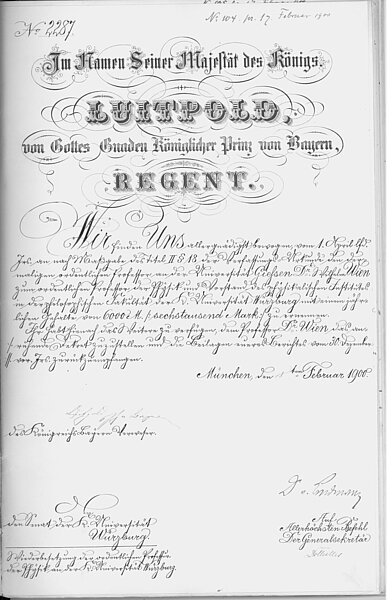 No 2287.
No 104 pr. 17. Februar 1900
Im Namen Seiner Majestät des Königs.
LUITPOLD,
von Gottes Gnaden Königlicher Prinz von Bayern,
REGENT.
Wir finden Uns allergnädigst bewogen, vom 1. April lfd.
Jrs. an nach Maßgabe des Titel II § 18 der Verfassungs-Urkunde den der-
maligen ordentlichen Professor an der Universität Giessen Dr. Wilhelm Wien
zum ordentlichen Professor der Physik und Vorstand des physikalischen Institutes
in der philosophischen Fakultät der K. Universität Würzburg mit einem jähr-
lichen Gehalte von 6000 M. /: sechstausend Mark :/ zu ernennen.
Ihr habt hienach das Weitere zu verfügen, dem Professor Dr. Wien das an-
ruhende Dekret zuzustellen und die Beilagen eueres Berichtes vom 30. Dezember
vor. Jrs. zurückzuempfangen.
München, den 1ten Februar 1900.
des Königreichs Bayern Verweser.
An
den Senat der K. Universität
Würzburg.
Wiederbesetzung der ordentlichen Professur
der Physik an der K. Universität Würzburg.
Dr. v.
Auf
Allerhöchsten Befehl
Der Generalsekretär